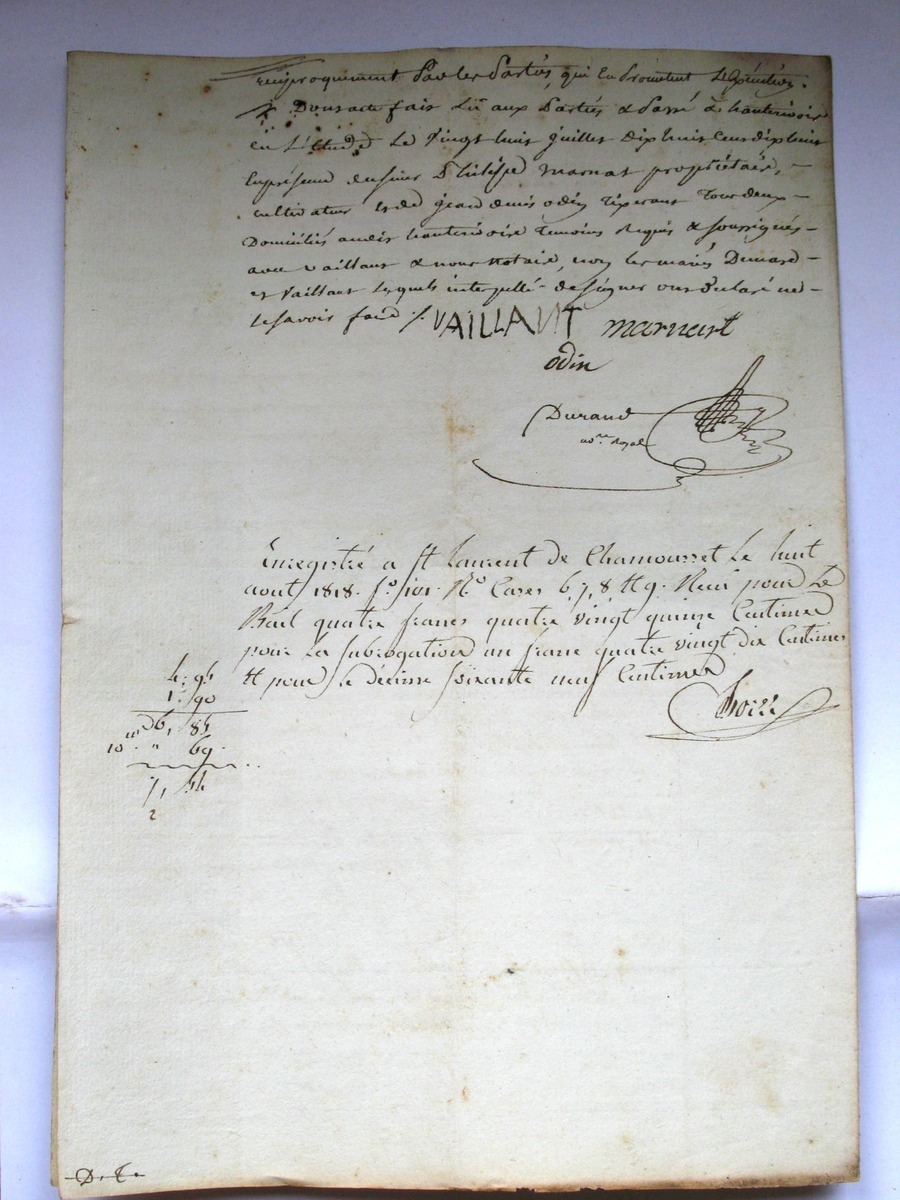 reciproquement Par les Parties, qui En Promettent L'Exécution.
Dont acte fait Lu aux Parties & Passé à hauterivoire
En L'Etude Le Vingt huit juillet dix huit Cent dix huit
En présence du sieur Philippe marnat propriétaire, -
cultivateur et de jean denis odin tisserant tous deux -
Domiciliés audit hauterivoire temoins Requis & soussignés -
avec vaillant & nous Notaire, non les mariés Dumard -
et Vaillant lesquels interpellé de signer ont declaré ne -
le savoir faire ./.
VAILLANT marnart
odin
Durand
no.re Royal
Enregistré a St Laurent de Chamousset Le huit
aout 1818. f.o 101. R.o Cases 6, 7, 8 et 9. Recu pour Le
Bail quatre francs quatre vingt quinze Centimes
pour La Subrogation un franc quatre vingt dix Centimes
et pour le décime soixante neuf Centimes
4: 95
1: 90
6, 85
10 . " 69.
7, 54
2
D. T.